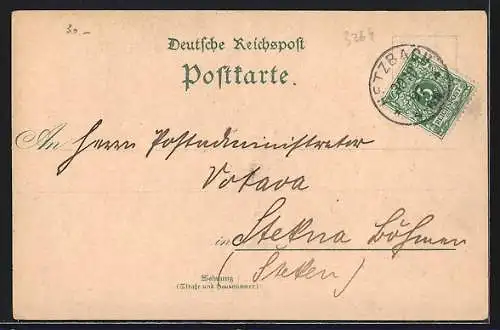 30.-
3264
Deutsche Reichspost
Postkarte.
TZBACH
5
An Herrn Postadministrator
Votava
in Stekna Böhmen
(Steken)
Wohnung
(Straße und Hausnummer)